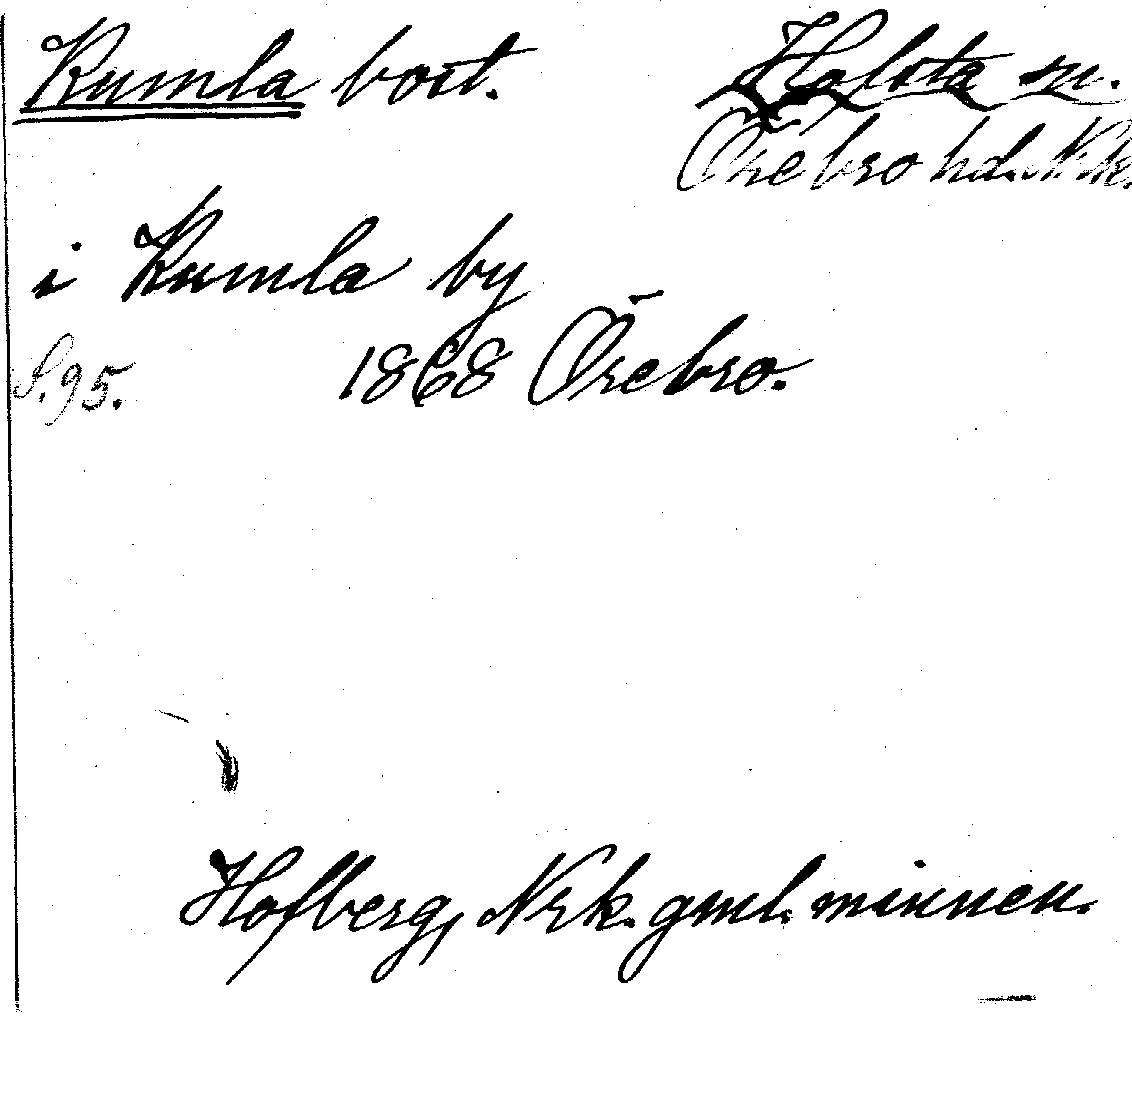 Kumla bost.
Holsta sn.
Örebro hd. Nrk.
i Kumla by
S. 95.
1868 Örebro.
Hofberg, Nrk. gml. minnen.